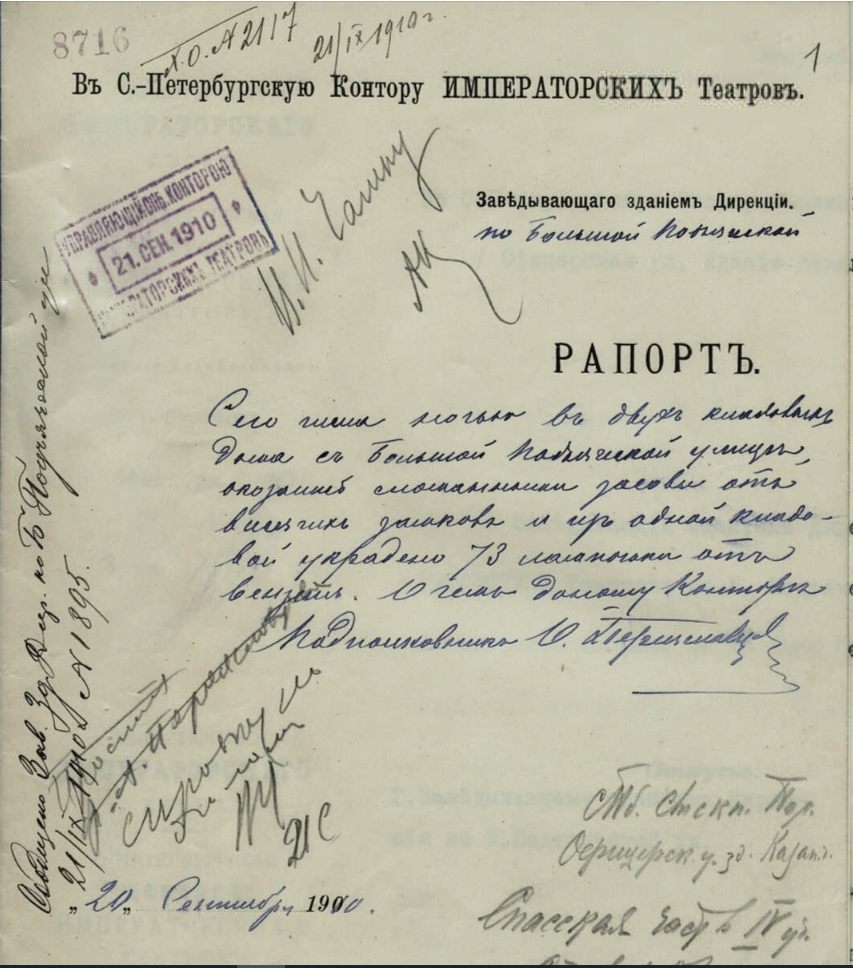 8716
Х.О. № 2117
21/IX 1910 г.
1
Въ С.-Петербургскую Контору ИМПЕРАТОРСКИХЪ Театровъ.
УПРАВЛЯЮЩІЙ С.ПБ. КОНТОРОЮ
21. СЕН. 1910
ИМПЕРАТОРСКИХЪ ТЕАТРОВЪ
Завѣдывающаго зданіемъ Дирекціи.
по Большой Подъяческой
РАПОРТЪ.
Сего числа ночью въ двухъ кладовыхъ
дома съ Большой Подъяческой улицы,
оказались сломанными засовы отъ
висячихъ замковъ и изъ одной кладо-
вой украдено 73 лампочки отъ
. О чемъ доношу Конторѣ
Подполковникъ
Сообщено Зав. Зд. Дир. по Б. Подъяческой ул.
21/IX 1910 № 1895.
21 С
„20„ Сентября 1910.
СПб.
Офицерск. у. зд. Казан.
Спасская часть IV уч.